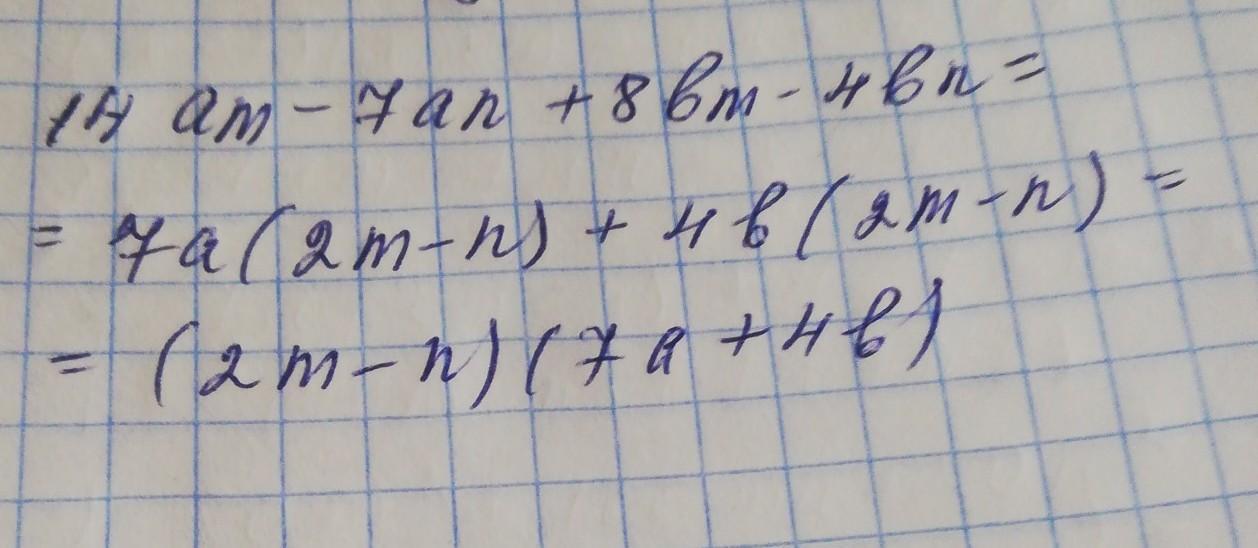 14 am - 7an + 8bm - 4bn =
= 7a(2m - n) + 4b(2m - n) =
= (2m - n)(7a + 4b)